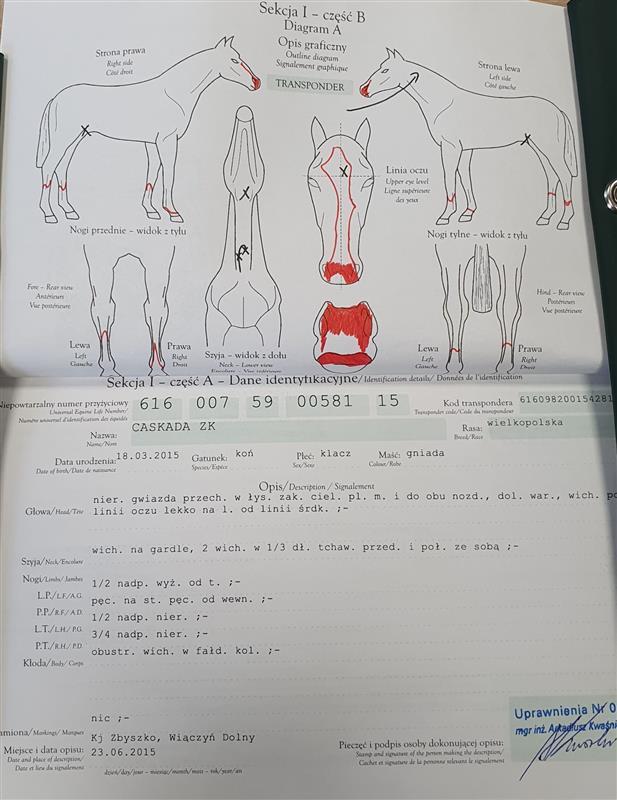 Sekcja I – część B
Diagram A
Opis graficzny
Outline diagram
Signalement graphique
TRANSPONDER
Strona prawa
Right side
Côté droit
Strona lewa
Left side
Côté gauche
Linia oczu
Upper eye level
Ligne supérieure
des yeux
Nogi przednie – widok z tyłu
Nogi tylne – widok z tyłu
Fore – Rear view
Antérieurs
Vue postérieure
Hind – Rear view
Postérieurs
Vue postérieure
Lewa
Left
Gauche
Prawa
Right
Droit
Szyja – widok z dołu
Neck – Lower view
Encolure – Vue inférieure
Lewa
Left
Gauche
Prawa
Right
Droit
Sekcja I – część A – Dane identyfikacyjne/Identification details/ Données de l'identification
Niepowtarzalny numer przyżyciowy
Universal Equine Life Number/
Numéro universel d'identification des équidés
616 007 59 00581 15
Kod transpondera
Transponder code/Code du transpondeur
61609820015428
Nazwa:
Name/Nom
CASKADA ZK
Rasa:
Breed/Race
wielkopolska
Data urodzenia:
Date of birth/Date de naissance
18.03.2015
Gatunek:
Species/Espèce
koń
Płeć:
Sex/Sexe
klacz
Maść:
Colour/Robe
gniada
Opis/Description / Signalement
nier. gwiazda przech. w łys. zak. ciel. pl. m. i do obu nozd., dol. war., wich. po
Głowa/Head/Tête
linii oczu lekko na l. od linii śrdk. ;-
wich. na gardle, 2 wich. w 1/3 dł. tchaw. przed. i poł. ze sobą ;-
Szyja/Neck/Encolure
Nogi/Limbs/Jambes
1/2 nadp. wyż. od t. ;-
L.P./L.F./A.G.
pęc. na st. pęc. od wewn. ;-
P.P./R.F./A.D.
1/2 nadp. nier. ;-
L.T./L.H./P.G.
3/4 nadp. nier. ;-
P.T./R.H./P.D.
obustr. wich. w fałd. kol. ;-
Kłoda/Body/Corps
nic ;-
Znamiona/Markings/Marques
Kj Zbyszko, Wiączyń Dolny
Miejsce i data opisu:
23.06.2015
Date and place of description/
Date et lieu du signalement
dzień/day/jour – miesiąc/month/mois – rok/year/an
Pieczęć i podpis osoby dokonującej opisu:
Stamp and signature of the person making the description/
Cachet et signature de la personne relevant le signalement
Uprawnienia Nr 0
mgr inż. Arkadiusz Kwaśni